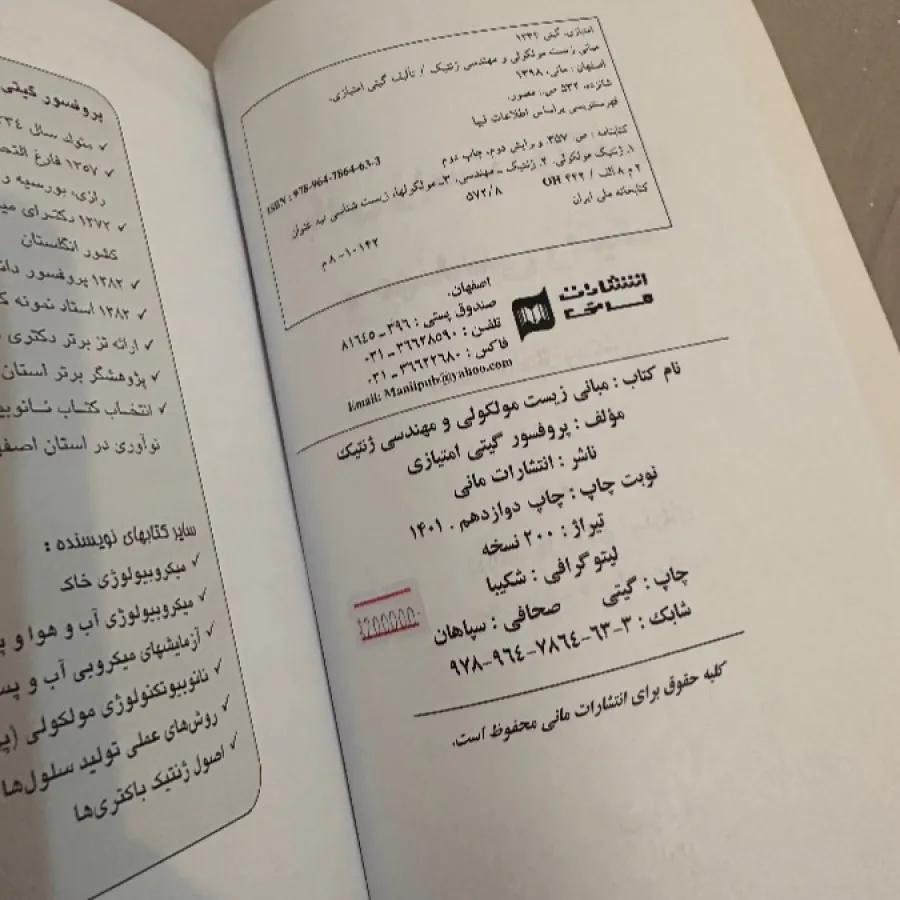 امتیازی، گیتی ۱۳۳۴
مبانی زیست مولکولی و مهندسی ژنتیک / تألیف گیتی امتیازی.
اصفهان: مانی، ۱۳۹۸
شانزده، ۵۳۲ ص: مصور.
فهرستنویسی براساس اطلاعات فیپا
ISBN: 978-964-7864-63-3
کتابنامه: ص. ۳۵۷. ویرایش دوم، چاپ دوم
۱. ژنتیک مولکولی. ۲. ژنتیک ـ مهندسی. ۳ـ مولکولها، زیست شناسی به عنوان
۲ م ۸ الف / QH ۴۴۲
۵۷۲/۸
کتابخانه ملی ایران
۱۰۱۴۲ - ۸ م
انتشارات
مانی
اصفهان.
صندوق پستی: ۳۹۶ ـ ۸۱۶۴۵
تلفن: ۳۶۶۲۸۵۹۰ ـ ۰۳۱
فاکس: ۳۶۶۲۲۶۸۰ ـ ۰۳۱
Email: Maniipub@yahoo.com
نام کتاب: مبانی زیست مولکولی و مهندسی ژنتیک
مؤلف: پروفسور گیتی امتیازی
ناشر: انتشارات مانی
نوبت چاپ: چاپ دوازدهم. ۱۴۰۱
تیراژ: ۲۰۰ نسخه
لیتوگرافی: شکیبا
چاپ: گیتی صحافی: سپاهان
شابک: ۳-۶۳-۷۸۶۴-۹۶۴-۹۷۸
1200000:
کلیه حقوق برای انتشارات مانی محفوظ است.
پروفسور گیتی
✓ متولد سال
✓ ۱۳۵۷ فارغ
رازی، بورسیه
✓ ۱۳۷۲ دکترای
کشور انگلستان
✓ ۱۳۸۲ پروفسور
✓ ۱۳۸۳ استاد نمونه
✓ ارائه تز برتر دکتری
✓ پژوهشگر برتر استان
✓ انتخاب کتاب
نوآوری در استان
سایر کتابهای نویسنده:
✓ میکروبیولوژی خاک
✓ میکروبیولوژی آب و هوا و
✓ آزمایشهای میکروبی آب و
✓ نانوبیوتکنولوژی مولکولی
✓ روش‌های عملی تولید سلول‌ها
✓ اصول ژنتیک باکتری‌ها